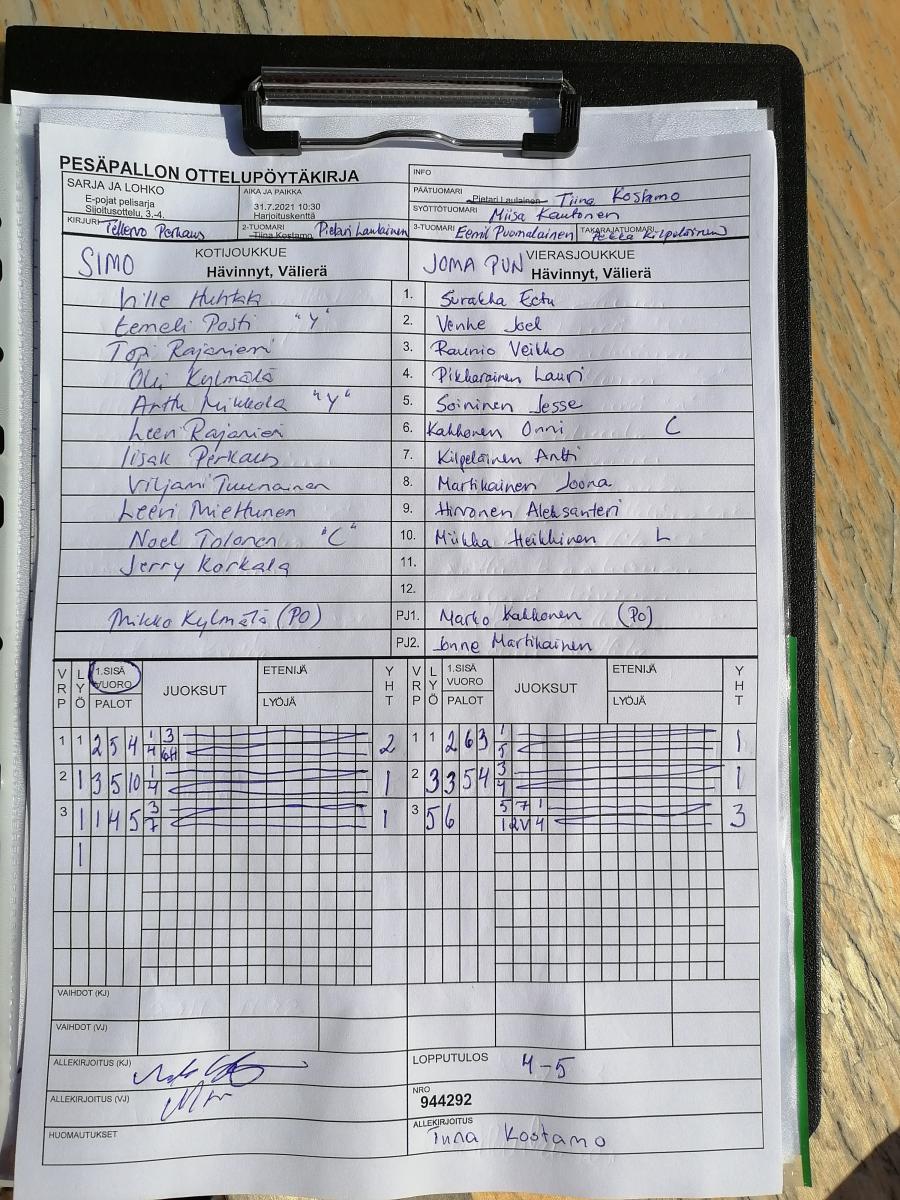 PESÄPALLON OTTELUPÖYTÄKIRJA
INFO
SARJA JA LOHKO
E-pojat pelisarja
Sijoitusottelu, 3.-4.
AIKA JA PAIKKA
31.7.2021 10:30
Harjoituskenttä
PÄÄTUOMARI Pietari Laulainen Tiina Kostamo
SYÖTTÖTUOMARI Miisa Kautonen
KIRJURI Tellervo Perhaus
2-TUOMARI Tiina Kostamo Pietari Laulainen
3-TUOMARI Eemil Puomalainen
TAKARAJATUOMARI Pekka Kilpeläinen
SIMO KOTIJOUKKUE
Hävinnyt, Välierä
JOMA PUN VIERASJOUKKUE
Hävinnyt, Välierä
Ville Huhtak 1. Surakka Eetu
Eemeli Posti "Y" 2. Venhe Joel
Topi Rajaniemi 3. Raunio Veikko
Oki Kylmälä 4. Pikkarainen Lauri
Arttu Mikkola "Y" 5. Soininen Jesse
Leevi Rajaniemi 6. Kakkonen Onni C
Iisak Perkaus 7. Kilpeläinen Antti
Viljami Tuunainen 8. Martikainen Joona
Leevi Miettunen 9. Hirvonen Aleksanteri
Noel Tolonen "C" 10. Miikka Heikkinen L
Jerry Korkala 11.
12.
Mikko Kylmälä (PO) PJ1. Marko Kakkonen (PO)
PJ2. Jonne Martikainen
VRP LYÖ 1.SISÄ VUORO PALOT JUOKSUT ETENIJÄ LYÖJÄ YHT VRP LYÖ 1.SISÄ VUORO PALOT JUOKSUT ETENIJÄ LYÖJÄ YHT
1 1 2 5 4 1 3 2 1 1 2 6 3 1 1
4 6H 5
2 1 3 5 10 1 1 2 3 3 5 4 3 1
4 4
3 1 1 4 5 3 1 3 5 6 5 7 1 3
7 1 2V 4
1
VAIHDOT (KJ)
VAIHDOT (VJ)
ALLEKIRJOITUS (KJ)
LOPPUTULOS 4-5
ALLEKIRJOITUS (VJ)
NRO
944292
HUOMAUTUKSET
ALLEKIRJOITUS
Tiina Kostamo